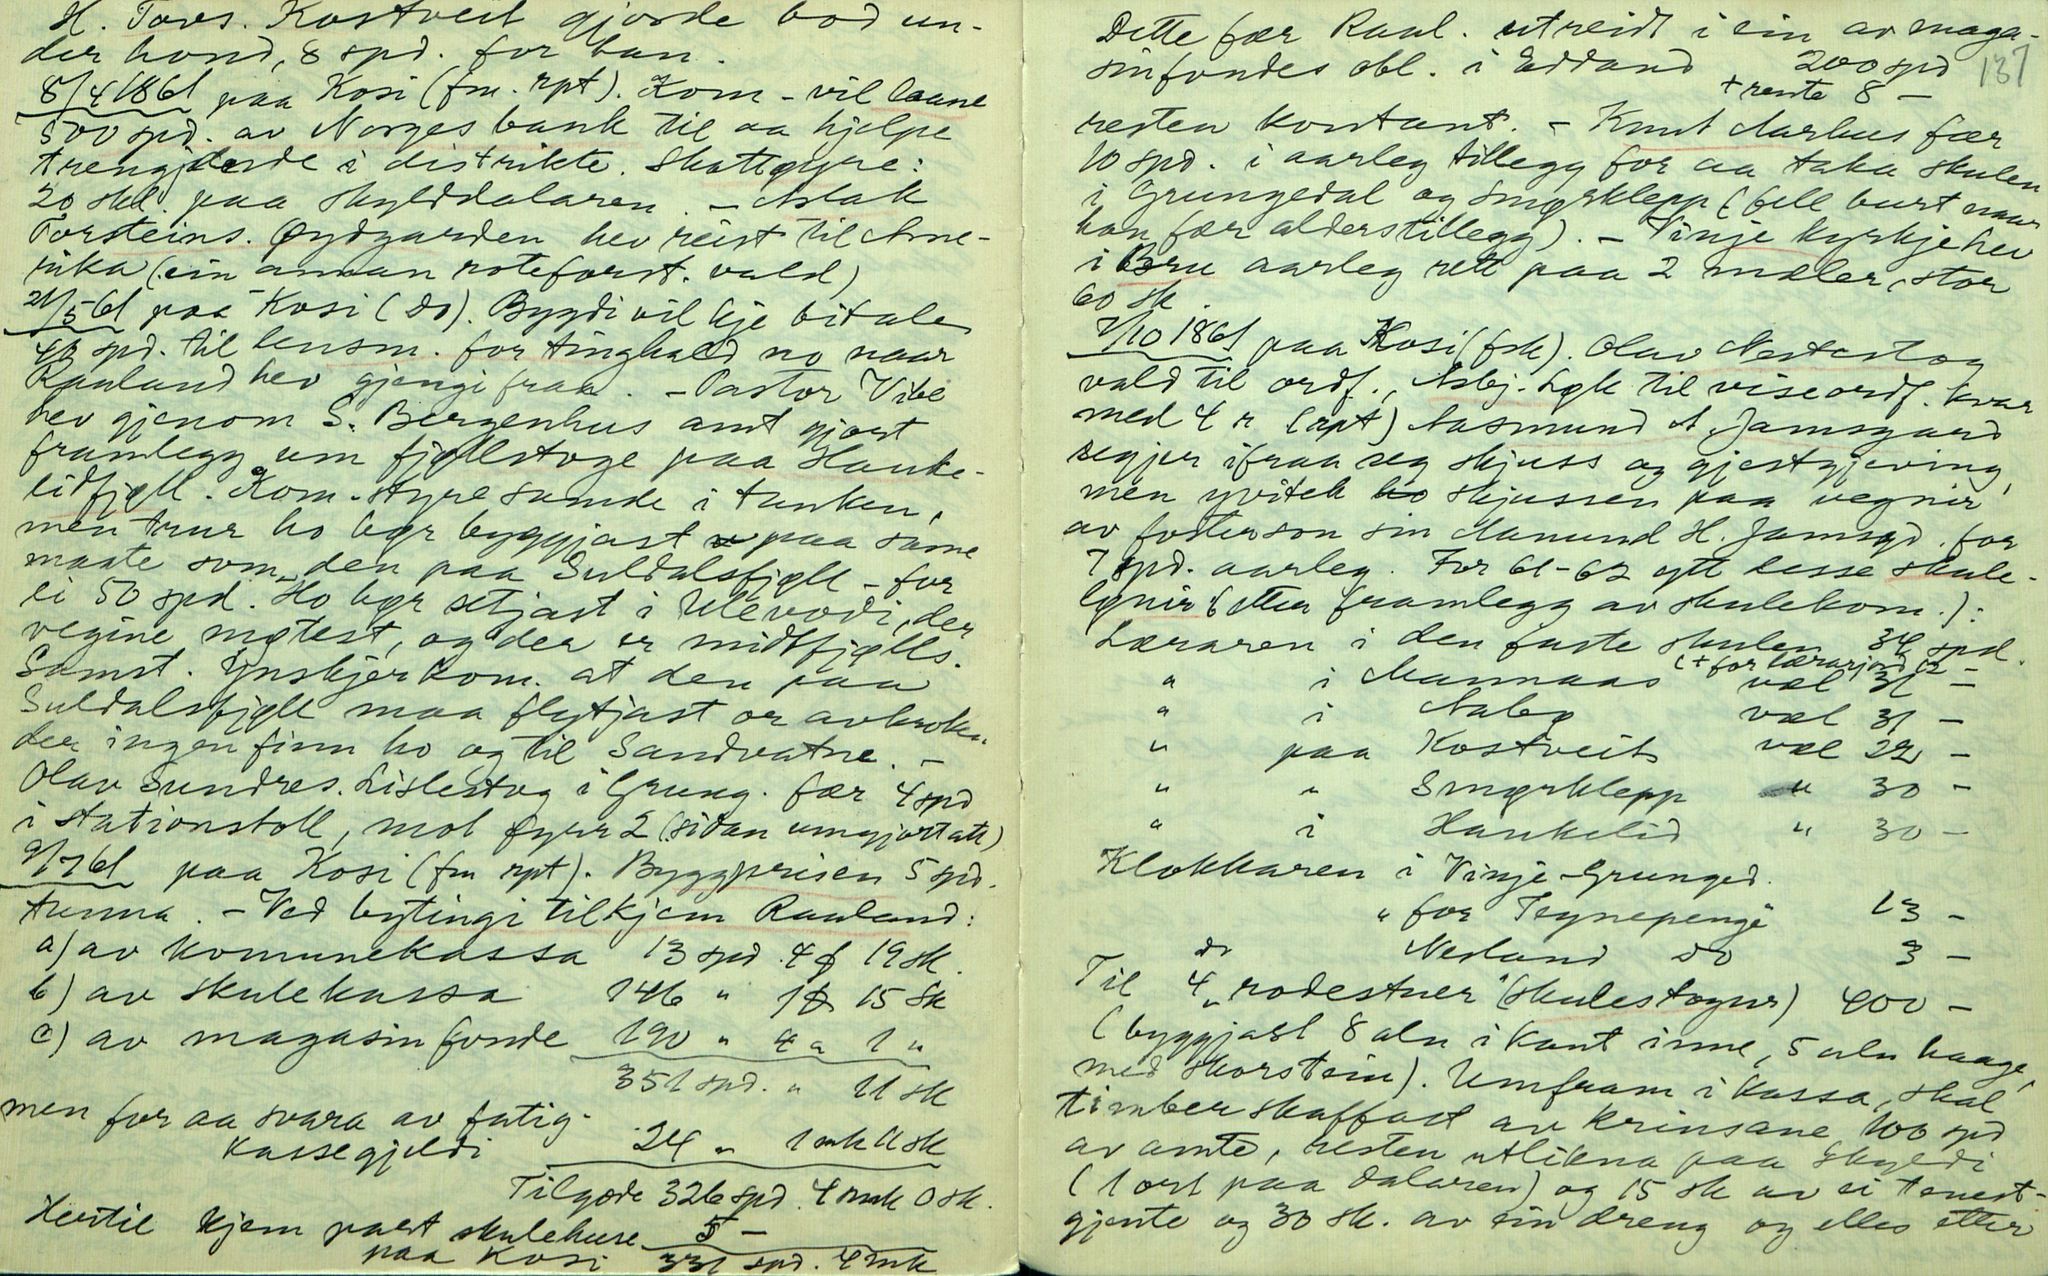 H. Tovs. Kostveit gjorde bod un-
der hond, 8 spd. for han.
8/4 1861 paa Kosi (fm. rpt). Kom - vil laane
500 spd. av Norges bank til aa hjelpe
trengjande i distrikte. Skattøyre:
20 skl. paa skylddalaren. - Aslak
Torsteins. Øydgarden hev reist til Ame-
rika (ein annan roteforst. vald)
21/5 61 paa Kosi (do). Bygdi vil kje bitale
spd. til lensm. for tinghald no naar
Rauland hev gjengi fraa. - Pastor Vibe
hev gjenom S. Bergenhus amt gjort
framlegg um fjellstoge paa Hauke-
lidfjell. Kom. styre samde i tanken,
men trur ho bør byggjast paa same
maate som den paa Suldalsfjell - for
ei 50 spd. Ho bør setjast i Ulevodi, der
vegine møtest, og der er midtfjells.
Samst. Ynskjer kom. at den paa
Suldalsfjell maa flytjast or avkroken
der ingen finn ho og til Sandvatne. -
Olav Sundres. Lislestog i Grung. fær 4 spd
i stationstoll, mot fyrr 2 (sidan umgjort att)
9/7 61 paa Kosi (fm rpt). Byggprisen 5 spd.
tunna. - Ved bytingi tilkjem Rauland:
a) av komunekassa 13 spd. 4 ₰ 19 sk.
b) av skulekassa 146 " 1 ₰ 15 sk
c) av magasinfonde 190 " 4 " 1 "
351 spd. " 11 sk
men for aa svara av fatig-
kassegjeldi 24 " 1 mk 11 sk
Tilgode 326 spd. 4 mk 0 sk.
Hertil kjem part skulehuse 5 -
paa Kosi 331 spd. 4 mk
137
Dette fær Raul. utreidt i ein av maga-
sinfondes obl. i Edland 200 spd
+ rente 8 -
resten kontant. - Knut Aarhus fær
10 spd. i aarleg tillegg for aa taka skulen
i Grungedal og Smørklepp (fell burt naar
han fær alderstillegg). - Vinje kyrkje hev
i Bru aarleg rett paa 2 mæler, stor
60 sk.
7/10 1861 paa Kosi (fsk). Olav Nestestog
vald til ordf., Asbj. Løk til viseordf. kvar
med 4 r (rpt) Aasmund A. Jamsgard
segjer ifraa seg skjuss og gjestgjeving,
men yvitek skjussen paa vegnir
av fosterson sin Aanund H. Jamsgd. for
7 spd. aarleg. For 61-62 ytt desse skule-
lønir (etter framlegg av skulekom.):
Læraren i den faste skulen 34 spd.
(+ for lærarjord 12 -
" i Mannaas vel 31 -
" i Nabø vel 31 -
" paa Kostveit vel 22 -
" " Smørklepp " 30 -
" i Haukelid " 30 -
Klokkaren i Vinje-Grunged.
" for Tegnepenge 13 -
do Nesland do 3 -
Til 4 "rodestuer" (skulestogur) 400 -
(byggjast 8 aln i kant inne, 5 aln haage,
med skorstein). Umfram i kassa, skal
timber skaffast av krinsane, 100 spd
av amte, resten utlikna paa skyldi
(1 ort paa dalaren) og 15 sk av ei tenest-
gjente og 30 sk. av ein dreng og elles etter